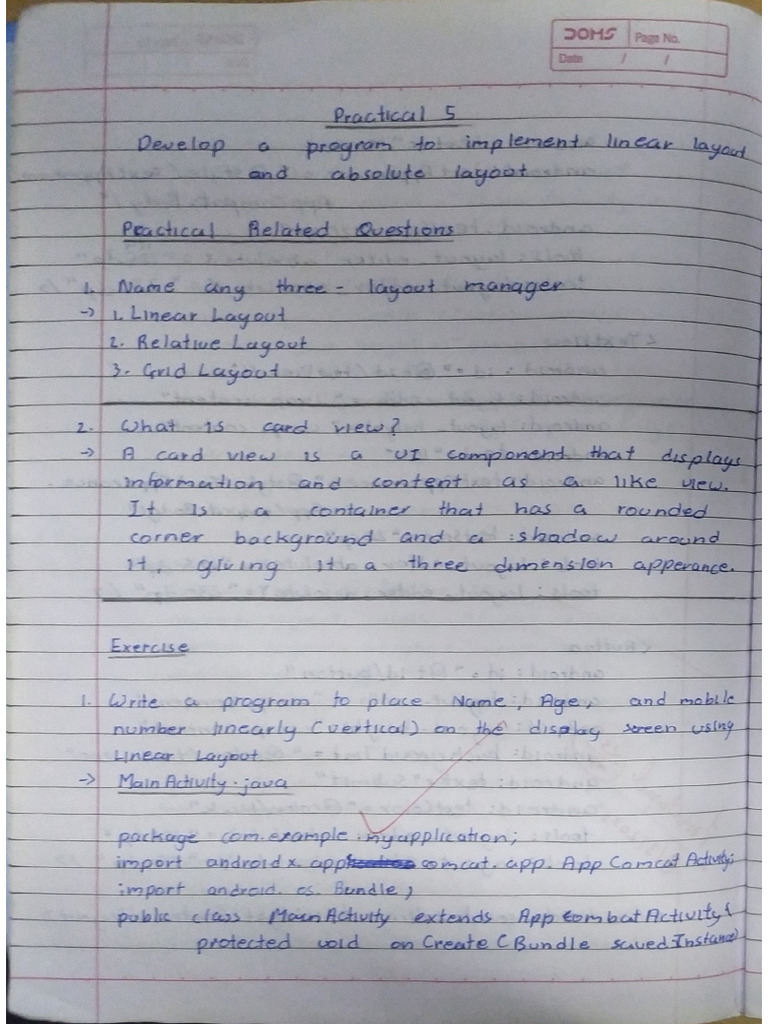 DOMS Page No.
Date / /
Practical 5
Develop a program to implement linear layout
and absolute layout
Practical Related Questions
1. Name any three - layout manager
→ 1. Linear Layout
2. Relative Layout
3. Grid Layout
2. What is card view?
→ A card view is a UI component that displays
information and content as a like view.
It is a container that has a rounded
corner background and a shadow around
it, giving it a three dimension apperance.
Exercise
1. Write a program to place Name, Age, and mobile
number linearly (vertical) on the display sreen using
Linear Layout.
→ MainActivity.java
package com.example.myapplication;
import androidx.app comcat.app.AppComcatActivity;
import android.os.Bundle;
public class MainActivity extends AppCombatActivity{
protected void onCreate(Bundle savedInstance)